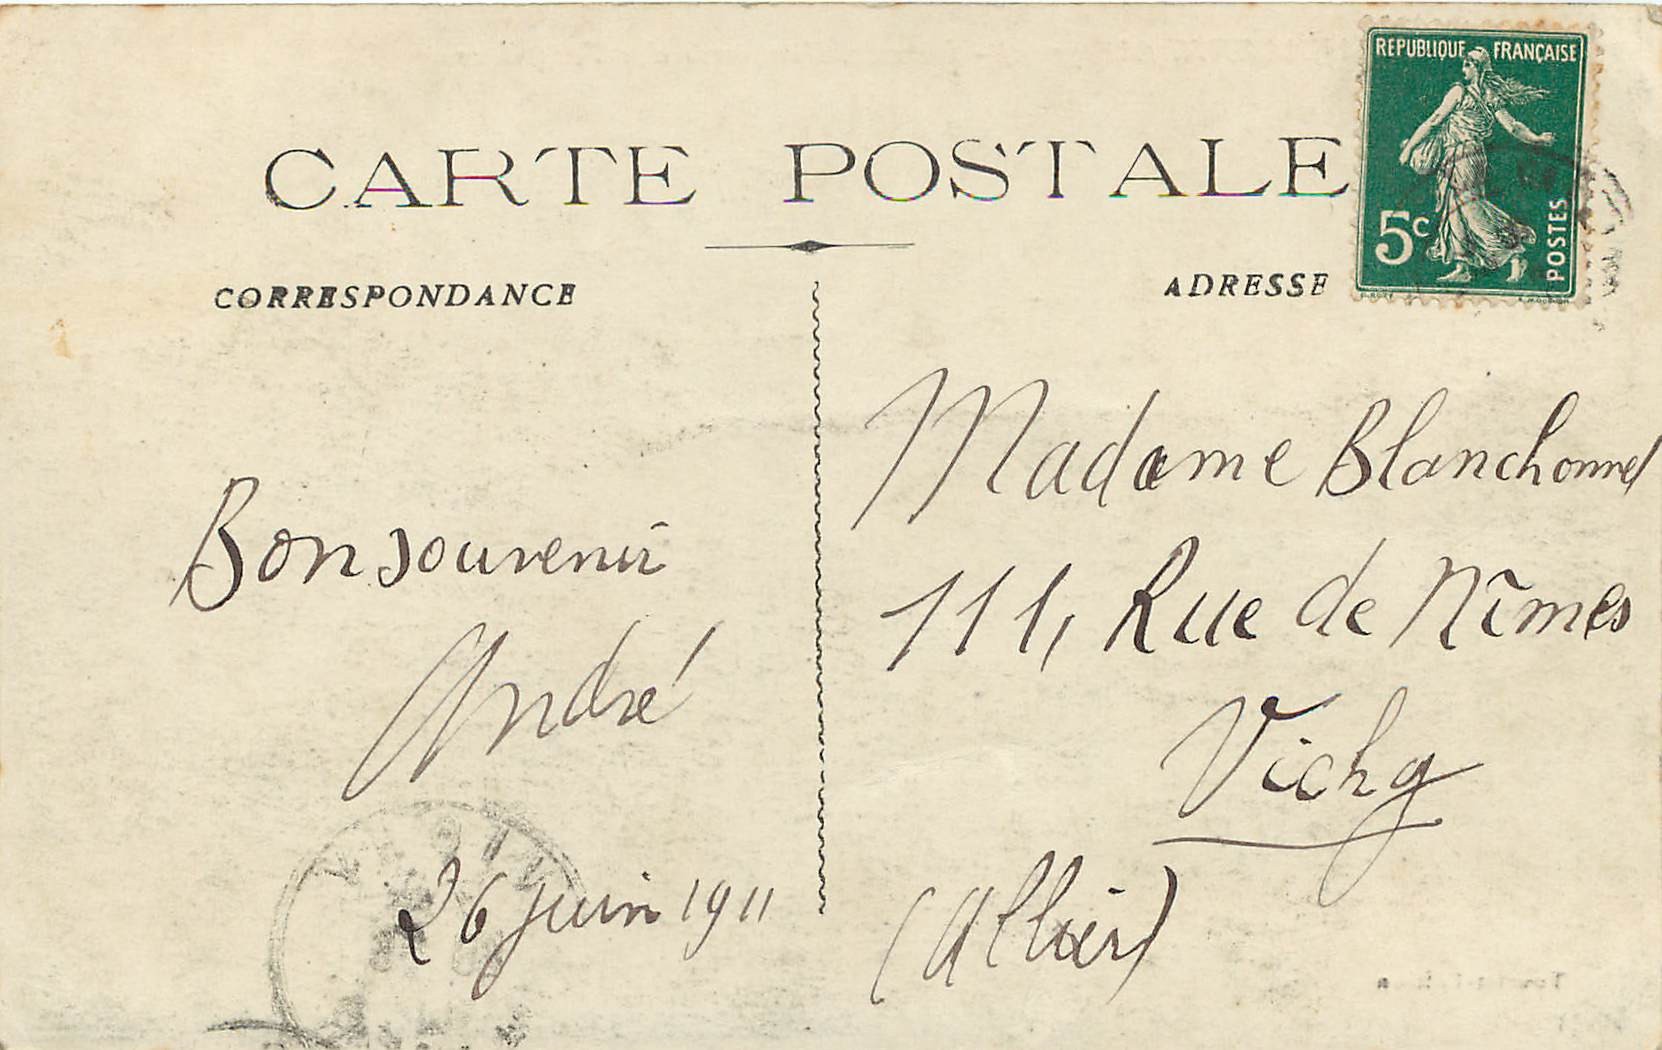 CARTE POSTALE
RÉPUBLIQUE FRANÇAISE
5c
POSTES
CORRESPONDANCE
ADRESSE
Bon souvenir
André
26 juin 1911
Madame Blanchonnet
111, Rue de Nîmes
Vichy
(Allier)